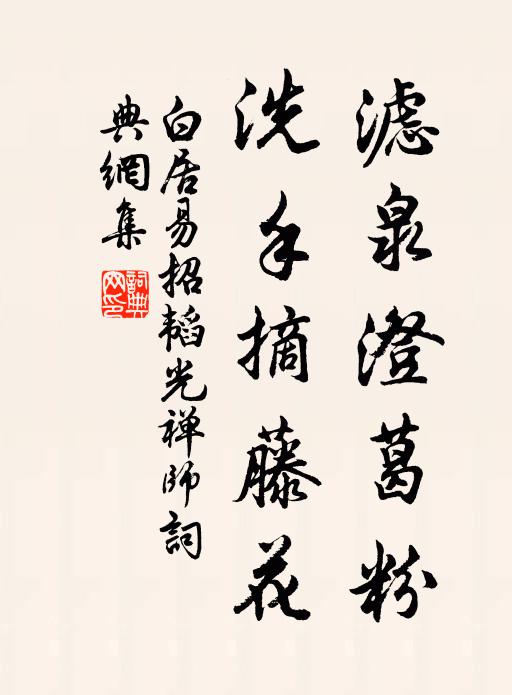 滤泉澄葛粉
洗手摘藤花
白居易招韬光禅师詞
典網集
詞典
网印